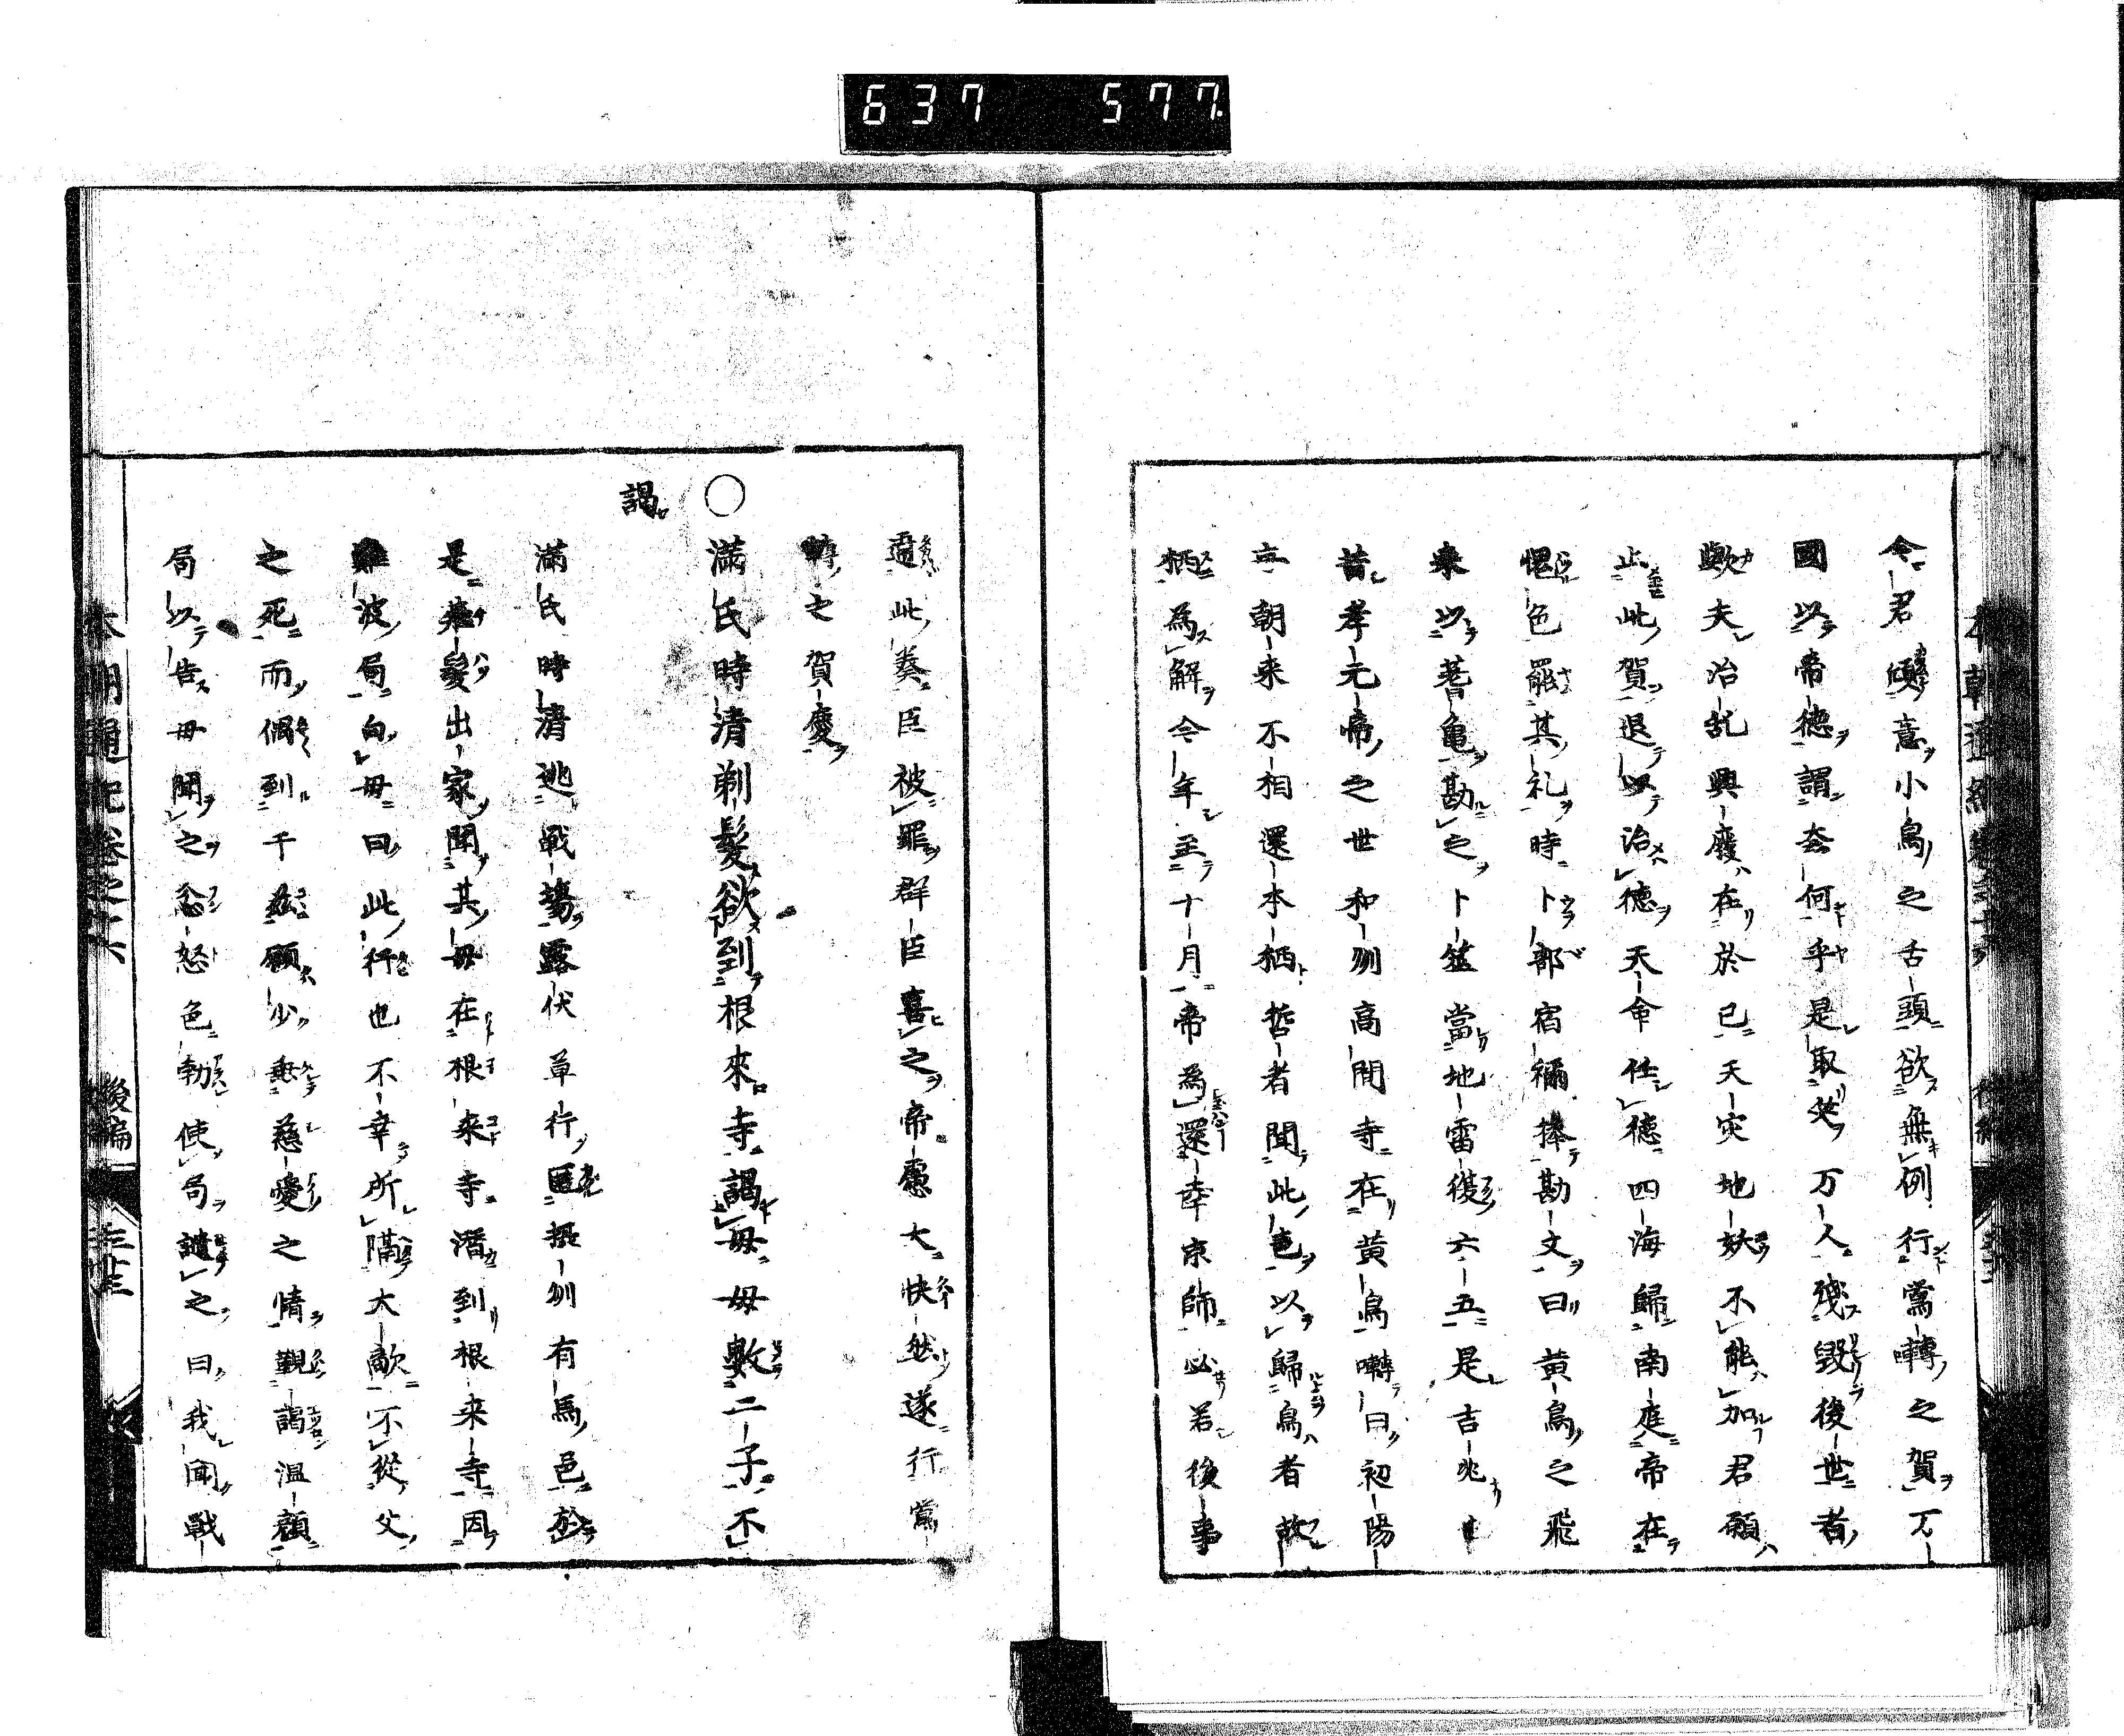 637 577.
令君傾意小鳥之舌頭欲無例行鴬囀之賀万
國以帝德謂奈何乎是取笑万人殘毀後世者
歟夫治乱興廢在於已天灾地妖不能加君願
止此賀退以治德天命任德四海歸南庭帝在
愧色罷其礼時卜部宿禰捧勘文曰黄鳥之飛
来以蓍亀勘之卜筮當地雷復六五是吉兆
昔孝元帝之世和刕高間寺在黄鳥囀曰初陽
每朝来不相還本栖哲者聞此
栖為解今年至十月帝為還幸京師必若後事
此奏臣被罪群臣喜之帝慮大快然遂行鴬
囀之賀慶
○滿氏時清剃髮欲到根來寺謁母母數二子不
謁
滿氏時清逃戦場露伏草行匿摂刕有馬邑於
是薙髮出家聞其母在根来寺潜到根来寺因
難波局向母曰此行也不幸所隔大敵不從父
之死而偶到于茲願少垂慈愛之情覲謁温顔
局以告母聞之忿怒色勃使局譴之曰我聞戦
本朝通紀卷之六 後編